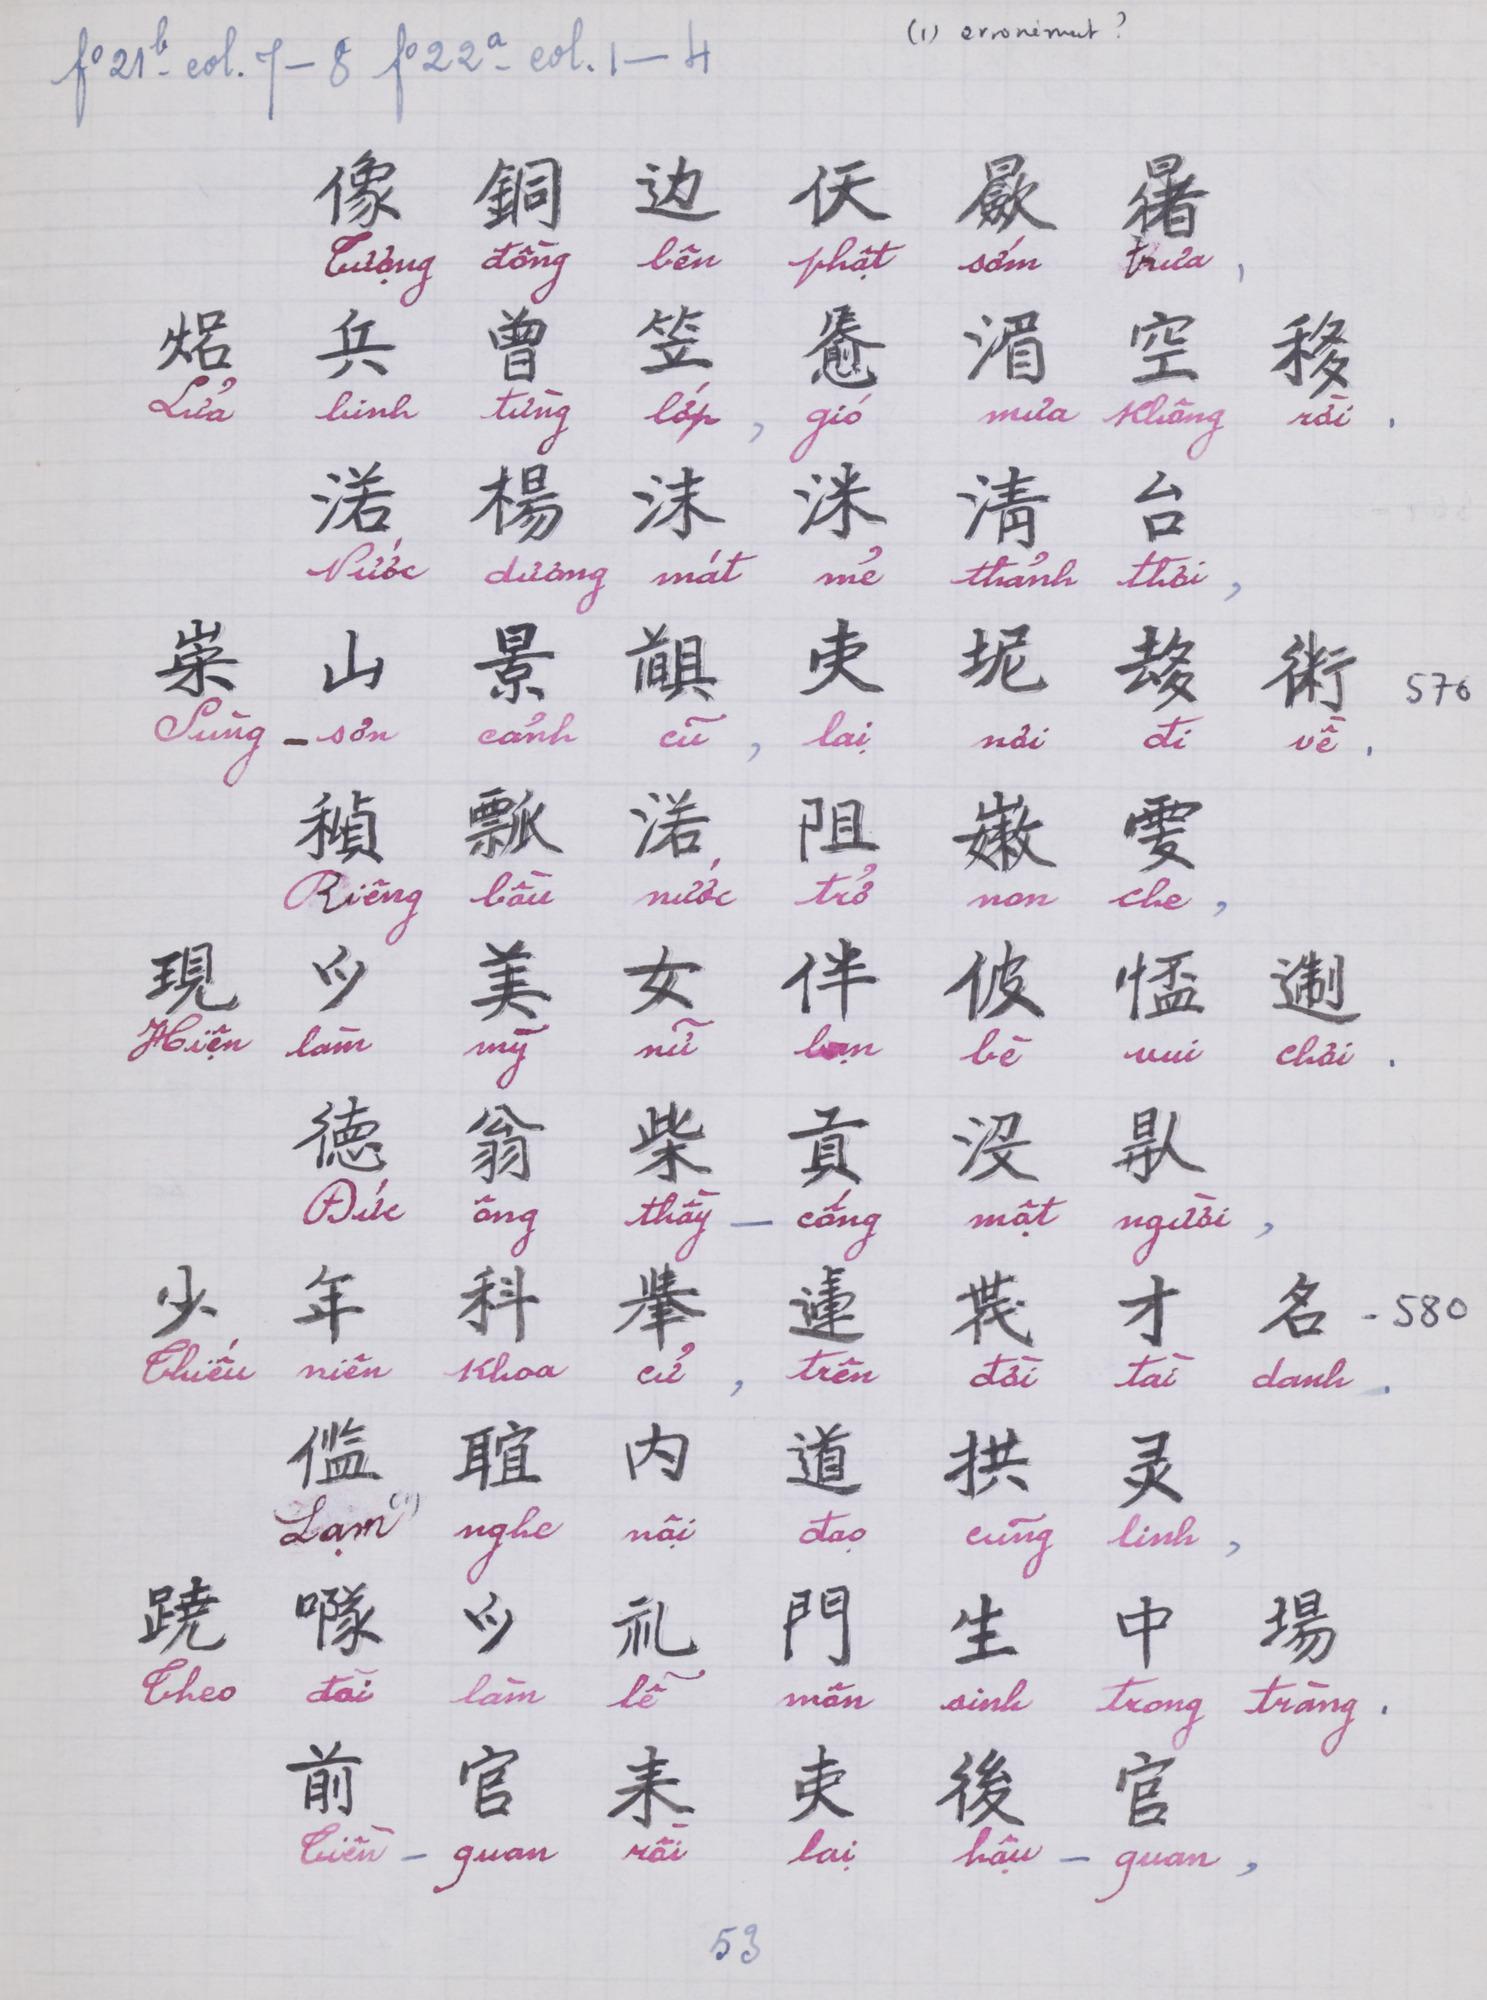 fº 21b - col. 7 – 8 fº 22a - col. 1 – 4
(1) erronément ?
像 銅 边 仸 𣋽
Tượng đồng bên phật sớm trưa,
焒 兵 曾 笠 湄 空 移
Lửa binh từng lớp, gió mưa không rời.
渃 楊 沫 洣 清 台
Nước dương mát mẻ thảnh thơi,
崇 山 景 吏 坭 𠫾 術 576
Sùng – sơn cảnh cũ, lại nơi đi về.
稹 瓢 渃 阻 𡽫 雯
Riêng bầu nước trở non che,
現 𫜵 美 女 伴 伎 𢝙 𨔾
Hiện làm mỹ nữ bạn bè vui chơi.
德 翁 柴 貢 沒 𠊛
Đức ông thầy – cống một người,
少 年 科 舉 蓮 茂 才 名 - 580
Thiếu niên khoa cử, trên đời tài danh.
尶 䏧 内 道 拱 灵
Lạm (1) nghe nội đạo cũng linh,
蹺 𠹲 𫜵 礼 門 生 中 場
Theo đòi làm lễ môn sinh trong tràng.
前 官 耒 吏 後 官
Tiền – quan rồi lại hậu – quan,
53